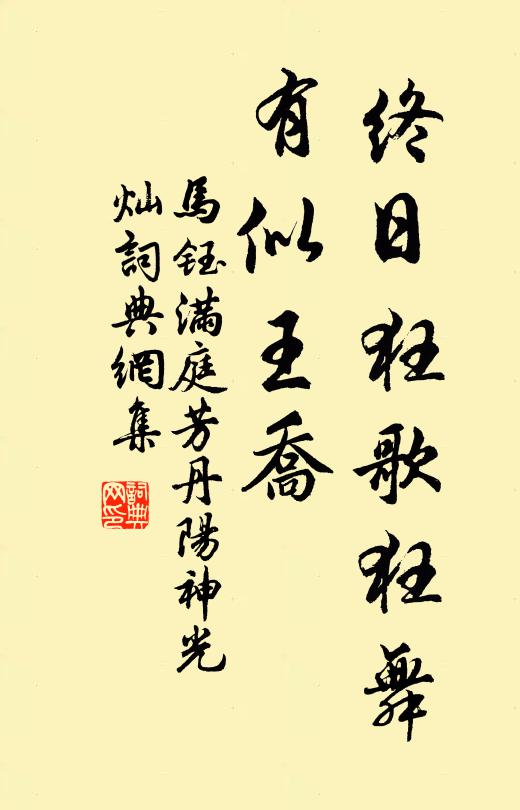 終日狂歌狂舞
有似王喬
馬鈺滿庭芳丹陽神光
灿詞典網集
詞典
网印